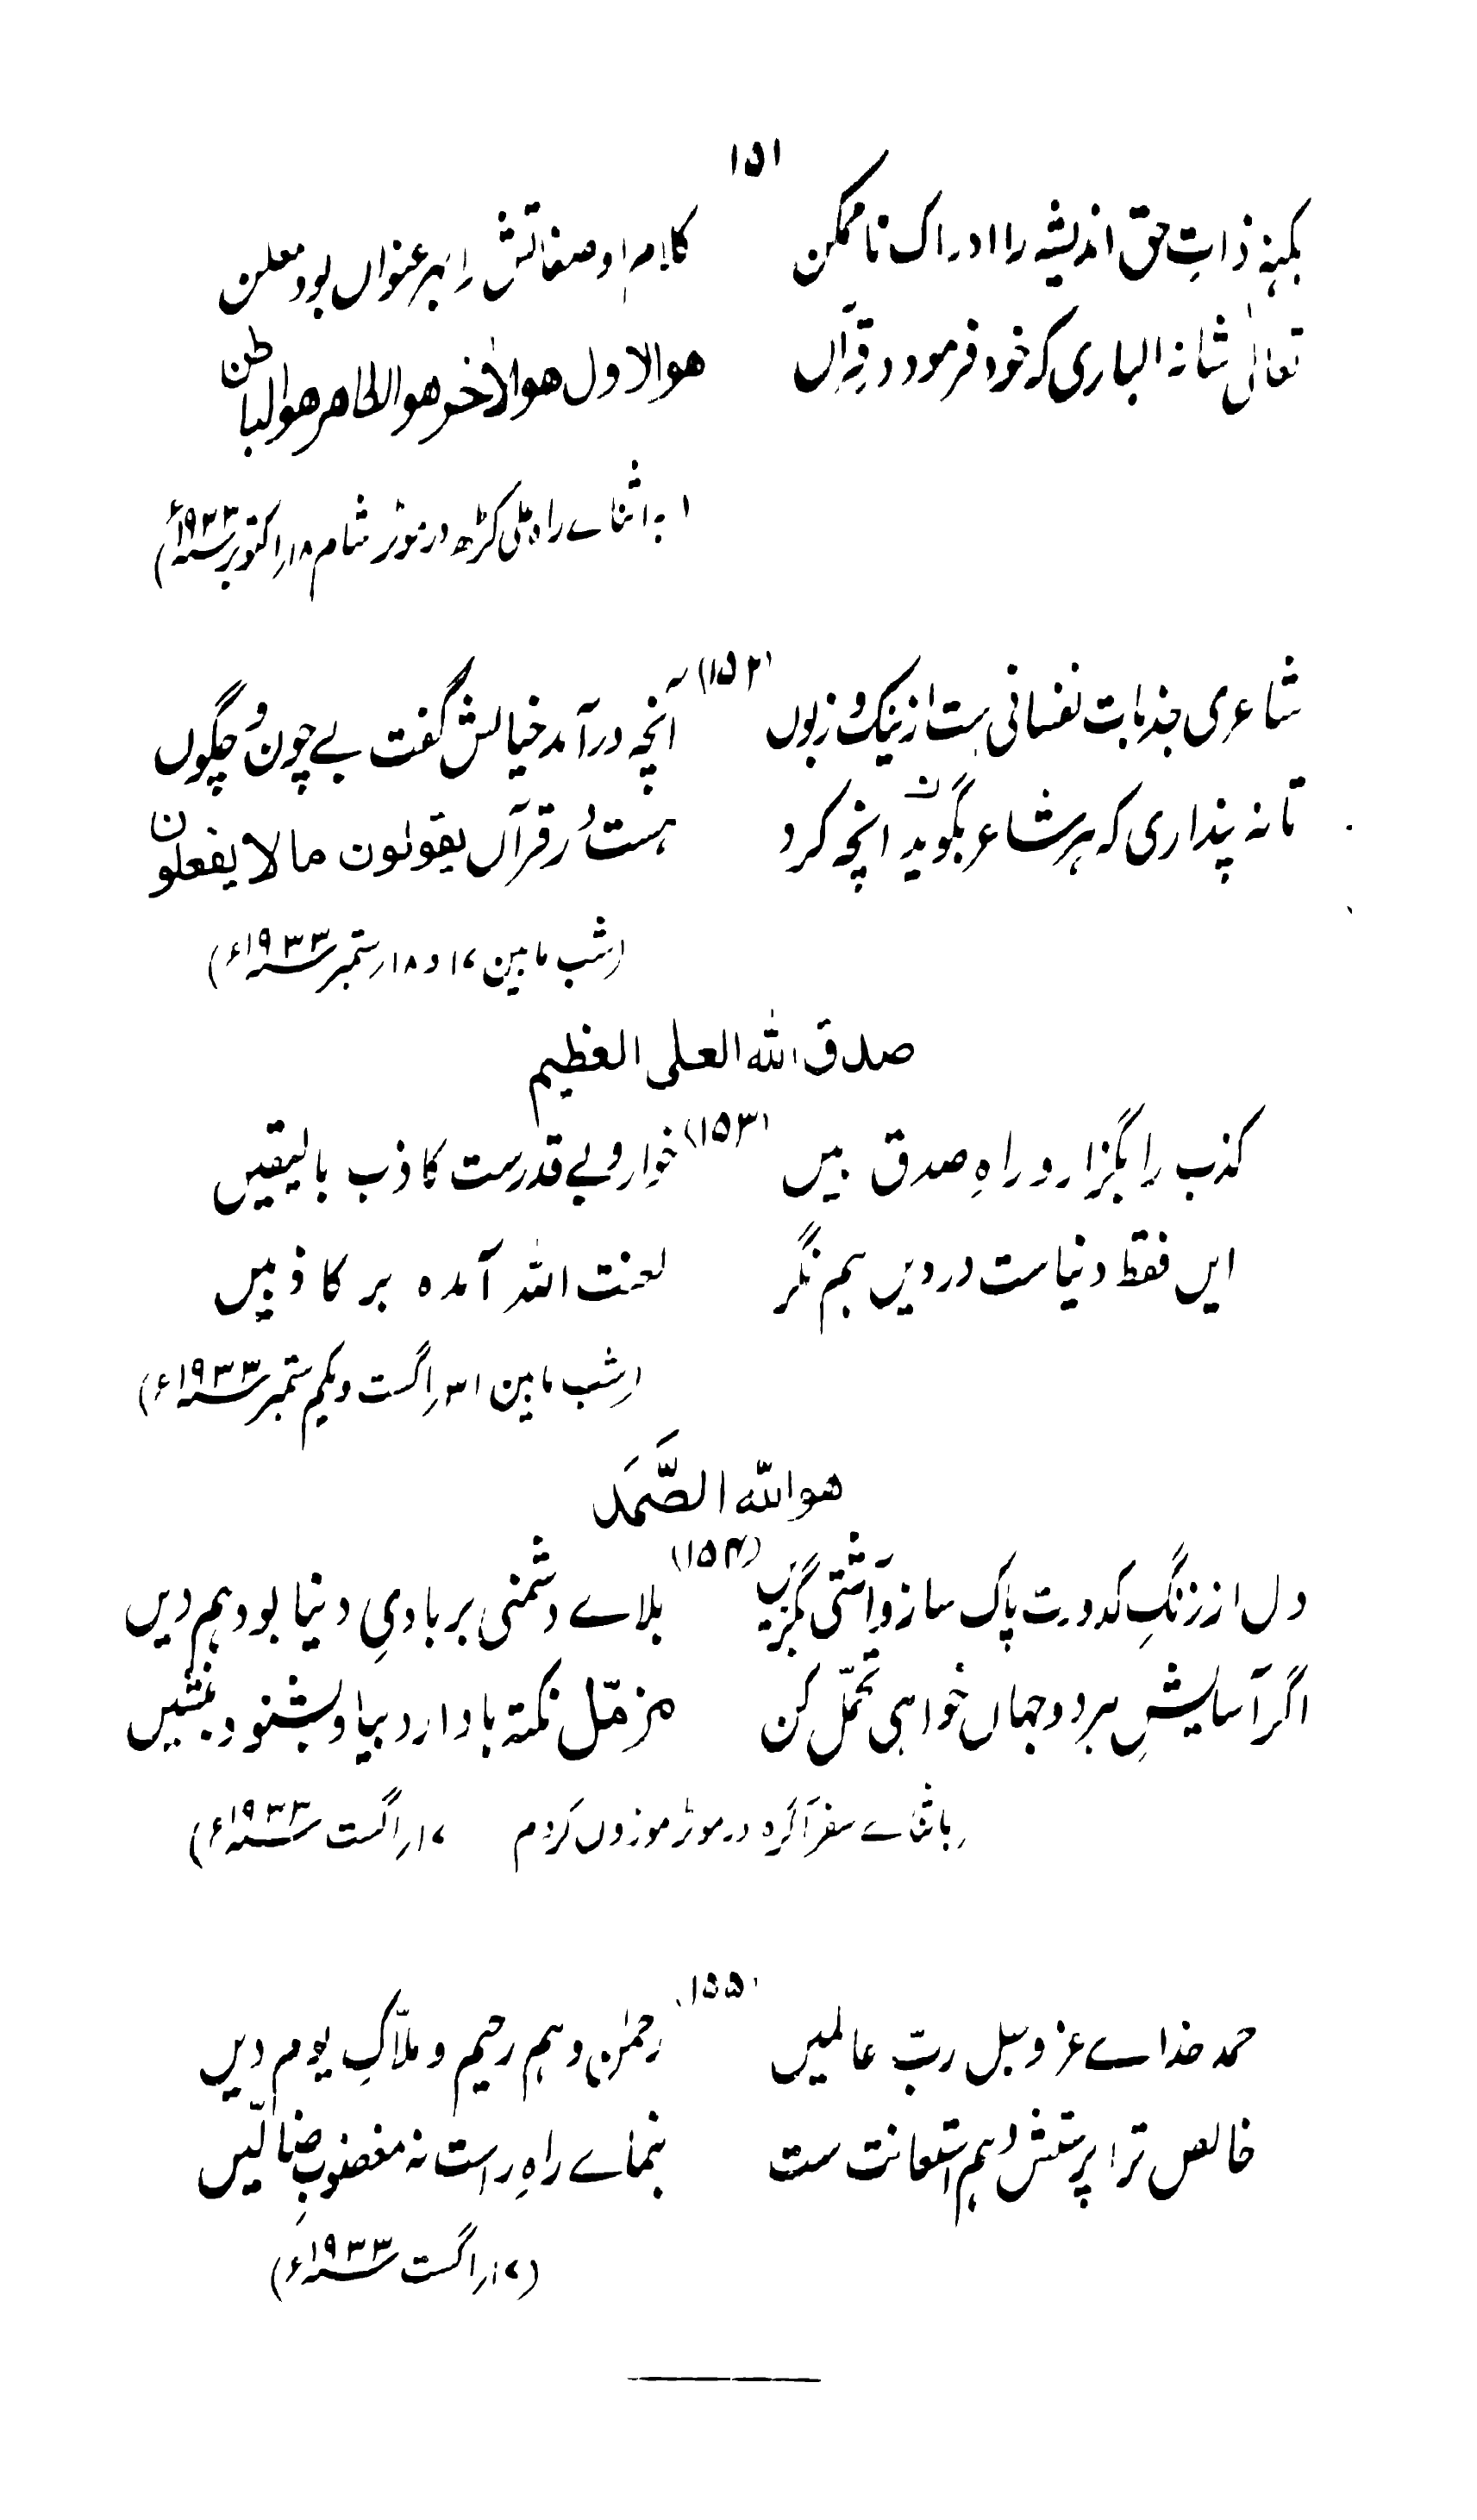 ۱۵۱
بکنہِ ذاتِ حق اندیشہ را ادراک ناممکن
کلام او صفاتش را بہر عنواں بود معلن
تعالیٰ شانہ الباری کہ خود فرمود در قرآں
ھوالاول ھوالاٰخر ھوالظاہر ھوالباطن
(بہ اثناے راہ علی گڑھ در موٹر شام اکتوبر ۱۹۳۳ء)
(۱۵۲)
شاعری جذبات نفسانی ست از نیک و زبوں
آنچہ در آمد خیالش گفت بے چون و چگوں
تا نہ پنداری کہ ہر شاعر بگوید آنچہ کرد
ہست در قرآں یقولون مالا یفعلون
(شب مابین ۱۷ و ۱۸ ستمبر ۱۹۳۳ء)
صدق اللہ العلی العظیم
(۱۵۳)
کذب را بگزار و راہِ صدق بیں
خوار و بے قدرست کاذب بالیقیں
ایں فقط دنیاست در دیں ہم نگر
لعنت اللہ آمدہ بر کاذبیں
(شب مابین ۳۱ اگست و یکم ستمبر ۱۹۳۳ء)
ھواللہ الصَّمَد
(۱۵۴)
دل از زنگِ کدورت پاک ساز و آشتی بگزیں
بلاے دشمنی بربادیِ دنیا بود ہم دیں
اگر آسایشِ ہر دو جہاں خواہی تحمّل کن
مزمّل نکتہ ہا دارد بیا و بشنو و بنشیں
(باثناے سفر آگرہ در موٹر موزوں کردم ۱۷ اگست ۱۹۳۳ء)
(۱۵۵)
حمد خداے عز و جل ربّ عالمیں
رحمٰن و ہم رحیم و ملّاکِ یوم دیں
خالص ترا پرستش و ہم استعانت ست
بنماے راہِ راست نہ مغضوب ضالّیں
(۷ اگست ۱۹۳۳ء)